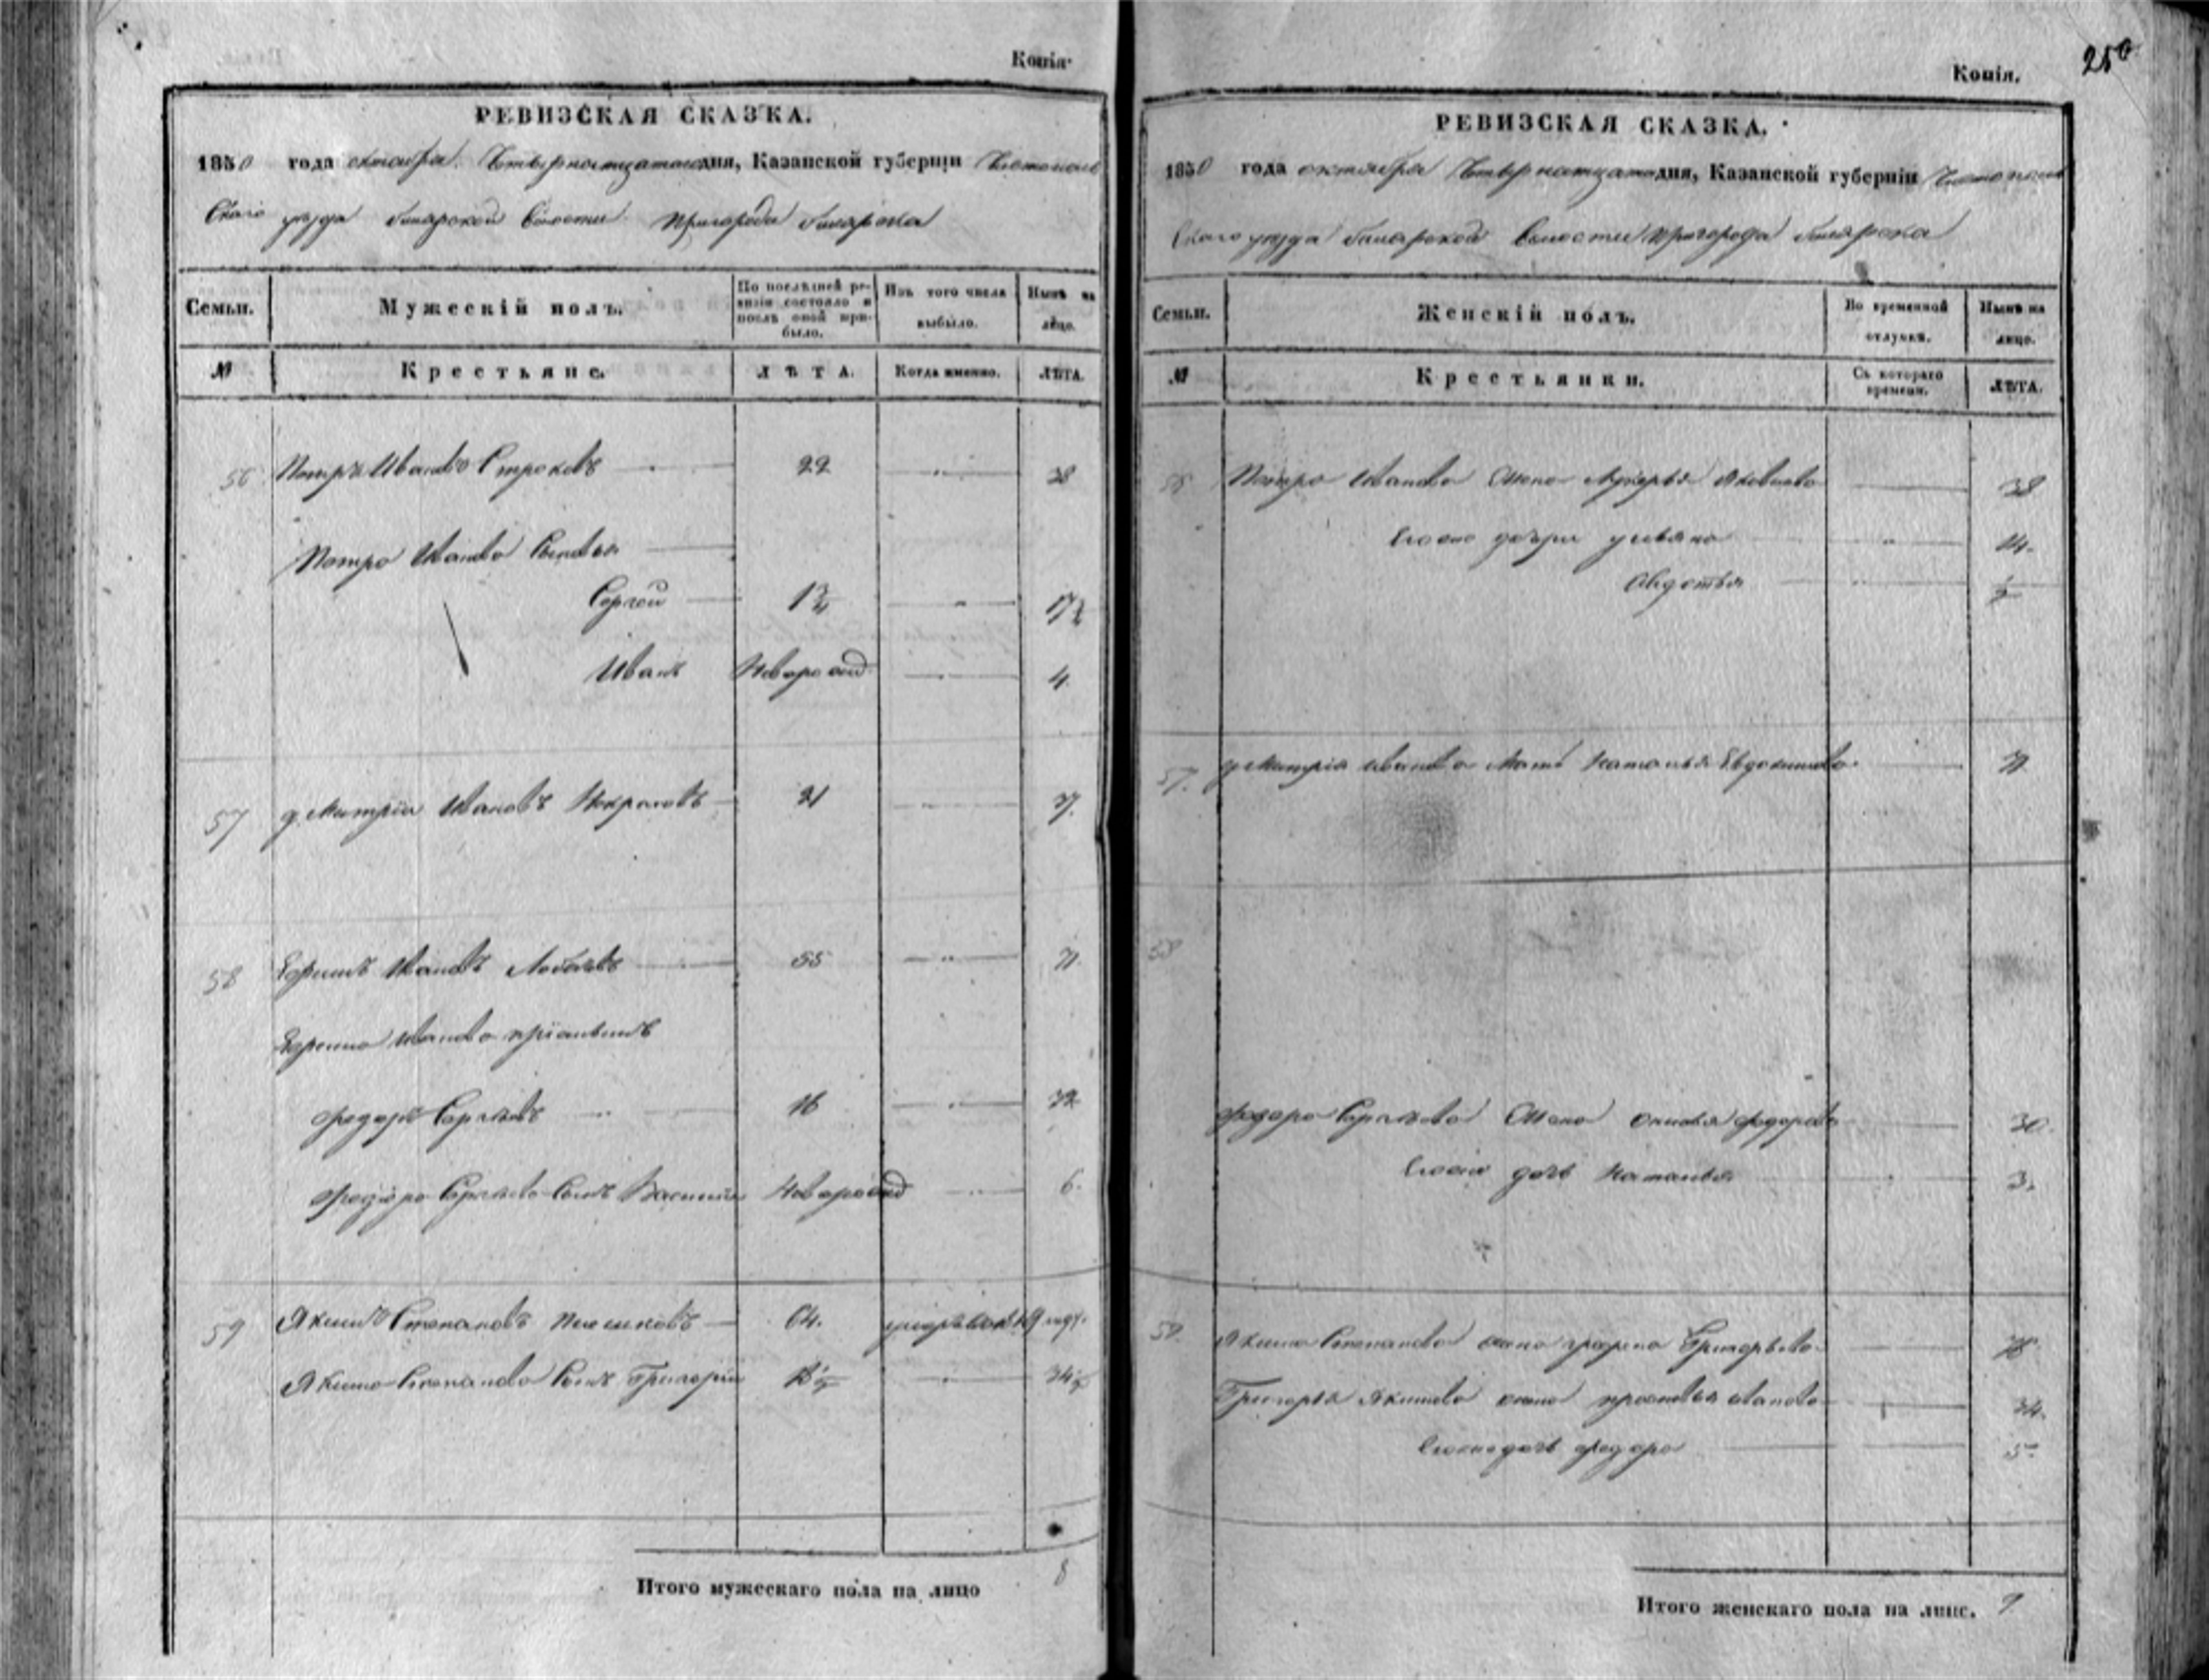 Копія.
РЕВИЗСКАЯ СКАЗКА.
1850 года октября Четырнатцатого дня, Казанской губерніи Чистополь
Скаго уезда билярской Волости Пригорода билярска
Семьи.
Мужескій полъ.
По послѣдней ре-
визіи состояло и
послѣ оной при-
было.
Изъ того числа
выбыло.
Нынѣ на
лицо.
№
Крестьяне.
ЛѢТА.
Когда именно.
ЛѢТА.
56 Петръ Ивановъ Строковъ 22 38
Петра Иванова Сыновья
Сергей 1 3/4 17 3/4
Иванъ Новорожд 4.
57 дмитрій Ивановъ Некрасовъ 21 37.
58 Ефимъ Ивановъ 55 71
Ефима Иванова пріемышъ
федоръ Сергѣевъ 16 32
федора Сергѣева Сынъ Василій Новорожд 6.
59 Якимъ Степановъ 64. 
Якима Степанова Сынъ Григорій 34 1/2
Итого мужескаго пола на лицо 8
Копія.
250
РЕВИЗСКАЯ СКАЗКА.
1850 года октября Четырнатцатого дня, Казанской губерніи Чистополь
Скаго уезда билярской Волости Пригорода билярска
Семьи.
Женскій полъ.
Во временной
отлучкѣ.
Нынѣ на
лицо.
№
Крестьянки.
Съ котораго
времени.
ЛѢТА.
56 Петра Иванова Жена Лукерья Яковлева 38
Его же дочери ульяна 14.
Авдотья 1/2
57. дмитрія иванова Мать Наталья Евдокимова 71
58
федора Сергѣева Жена федорова 30.
Его же дочь Наталья 3.
59. Якима Степанова жена Григорьева
Григорья Якимова жена прасковья иванова 34.
Его же дочь федора 5
Итого женскаго пола на лицо. 9